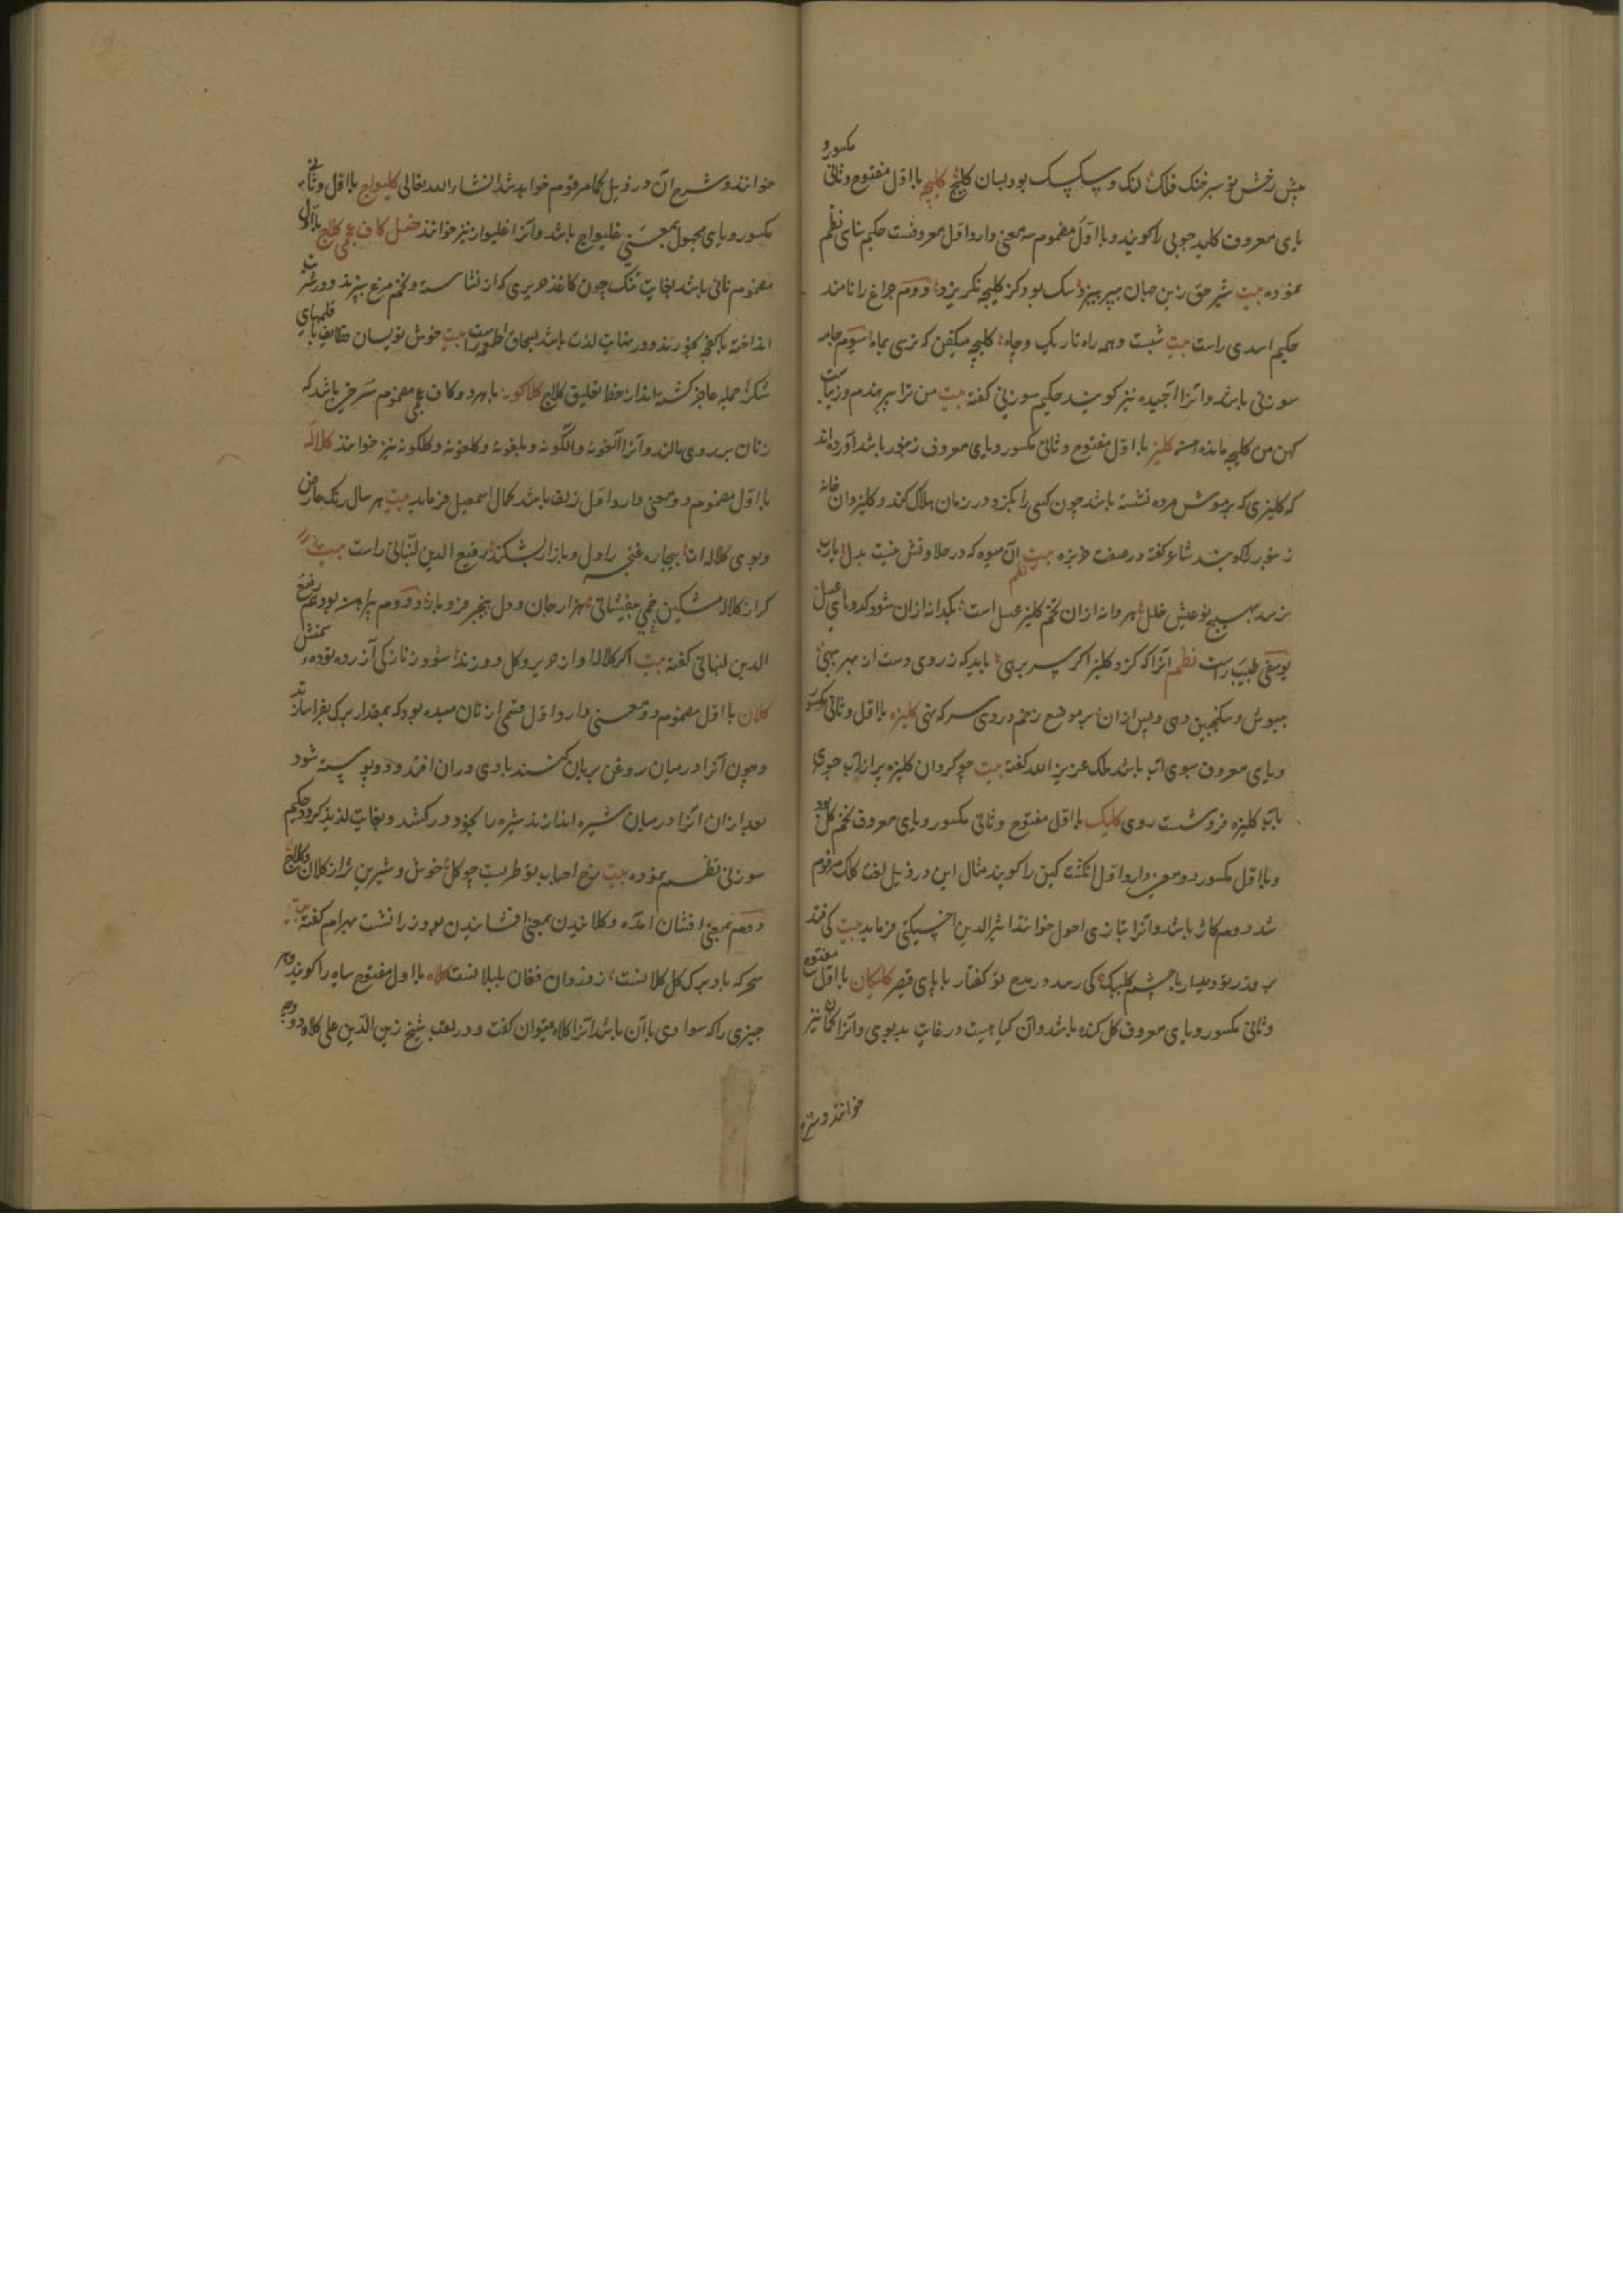 پیش رخش تو سبز خنگ فلک لنگ و سکسک بود بسان کلیج کلیچه با اول مفتوح و ثانی مکسور و
یای معروف کلید چوبی را گویند و با اول مضموم سه معنی دارد اول معروفست حکیم سنای نظم
نموده بیت شیر حق زین جهان بپرهیزد سک بود کز کلیچه نگریزد دوم جراغ را نامند
حکیم اسدی راست بیت شبست و همه راه تاریک و چاه کلیچه میفکن که نرسی بماه سیوم جامه
سوزنی باشد و آنرا آجیده نیز گویند حکیم سوزنی گفته بیت من
کهن من کلیچه مانده کلیز با اول مفتوح و ثانی مکسور و یای معروف زنبور باشد آورده‌اند
که کلیزی که بر موش مرده نشسته باشد چون کسی را بگزد در زمان هلاک کند و کلیزدان خانه
زنبور را گویند شاعر گفته در صفت خربزه بیت آن میوه که در حلاوتش نیست بدل یارب
نرسد بهیچ نوعیش خلل هر دانه از ان تخم کلیز عسل است یکدانه از ان شود کدوهای عسل
یوسفی طبیب راست نظم آنرا که گزد کلیز اگر سر برهی باید که ز روی دست از بهر بهی
سبوس و سکنجبین دهی و پس از ان بر موضع زخم در روی سرکه نهی کلیزه با اول و ثانی مکسور
و یای معروف سبوی آب باشد ملک عزیز الله گفته بیت چو کردان کلیزه پر از آب جوی
بآب کلیزه فرو شست روی کلیک با اول مفتوح و ثانی مکسور و یای معروف تخم کل بود
و با اول مکسور دو معنی دارد اول انگشت کهین را گویند مثال این در ذیل لغت کالک مرقوم
شد دوم کاژ باشد و آنرا بتازی احول خوانند اثیرالدین اخسیکتی فرماید بیت کی فتد
بر قدر تو دیدار با چشم کلیک کی رسد در مدح تو گفتار با پای قصیر کلیکان با اول مفتوح
و ثانی مکسور و یای معروف کل کنده باشد و آن کیاهیست در غایت بدبوی و آنرا کمان نیز
خوانند و شرح
خوانند و شرح آن در ذیل کما مرقوم خواهد شد انشاء الله تعالی کلیواج با اول و ثانی
مکسور و یای مجهول بمعنی غلیواج باشد و آنرا غلیواز نیز خوانند فصل کاف عجمی کلاج با اول
مضموم نانی باشد بغایت تنک چون کاغذ حریری که از نشاسته و تخم مرغ بپزند و در شربت
انداخته با کفچه بخورند و در نهایت لذت باشد بسحاق اطعمه راست بیت خوش نویسان قطایف با قلمهای
شکر جمله عاجز گشته‌اند از خط تعلیق کلاج کلاکونه با هر دو کاف عجمی مضموم سرخی باشد که
زنان بر روی مالند و آنرا آلغونه و الگونه و بلغونه و کلغونه و کلکونه نیز خوانند کلاله
با اول مضموم دو معنی دارد اول زلف باشد کمال اسمعیل فرماید بیت هر سال رنک عارض
و بوی کلاله‌ات بیچاره غنچه را دل و بازار بشکند رفیع الدین لنبانی راست بیت
کر از کلاله مشکین خمی بیفشانی هزار جان و دل بیخبر فرو بارد دوم پیراهن بود هم رفیع
الدین لنبانی گفته بیت اگر کلاله او از حریر و کل دوزند شود ز نازکی آزرده توده سمنش
کلان با اول مضموم دو معنی دارد اول قسمی از نان میده بود که بمقدار برک بغرا سازند
و چون آنرا در میان روغن بریان کنند بادی در ان افتد و دو پوسته شود
بعد ازان آنرا در میان شیره اندازند شیره را بخود در کشد و بغایت لذیذ گردد حکیم
سوزنی نظم نموده بیت رخ احباب تو طریست چو کل خوش و شیرین تر از کلان و کلاج
دوم بمعنی افشان آمده و کلانیدن بمعنی افشانیدن بود زراتشت بهرام گفته بیت
سحرکه باد برک کل کلانست ز فندوان فغان بلبلانست کلاه با اول مفتوح سیاه را گویند و هر
چیزی را که سوادی با آن باشد آنرا کلاه میتوان گفت و در لقب شیخ زین الدین علی کلاه دو وجه